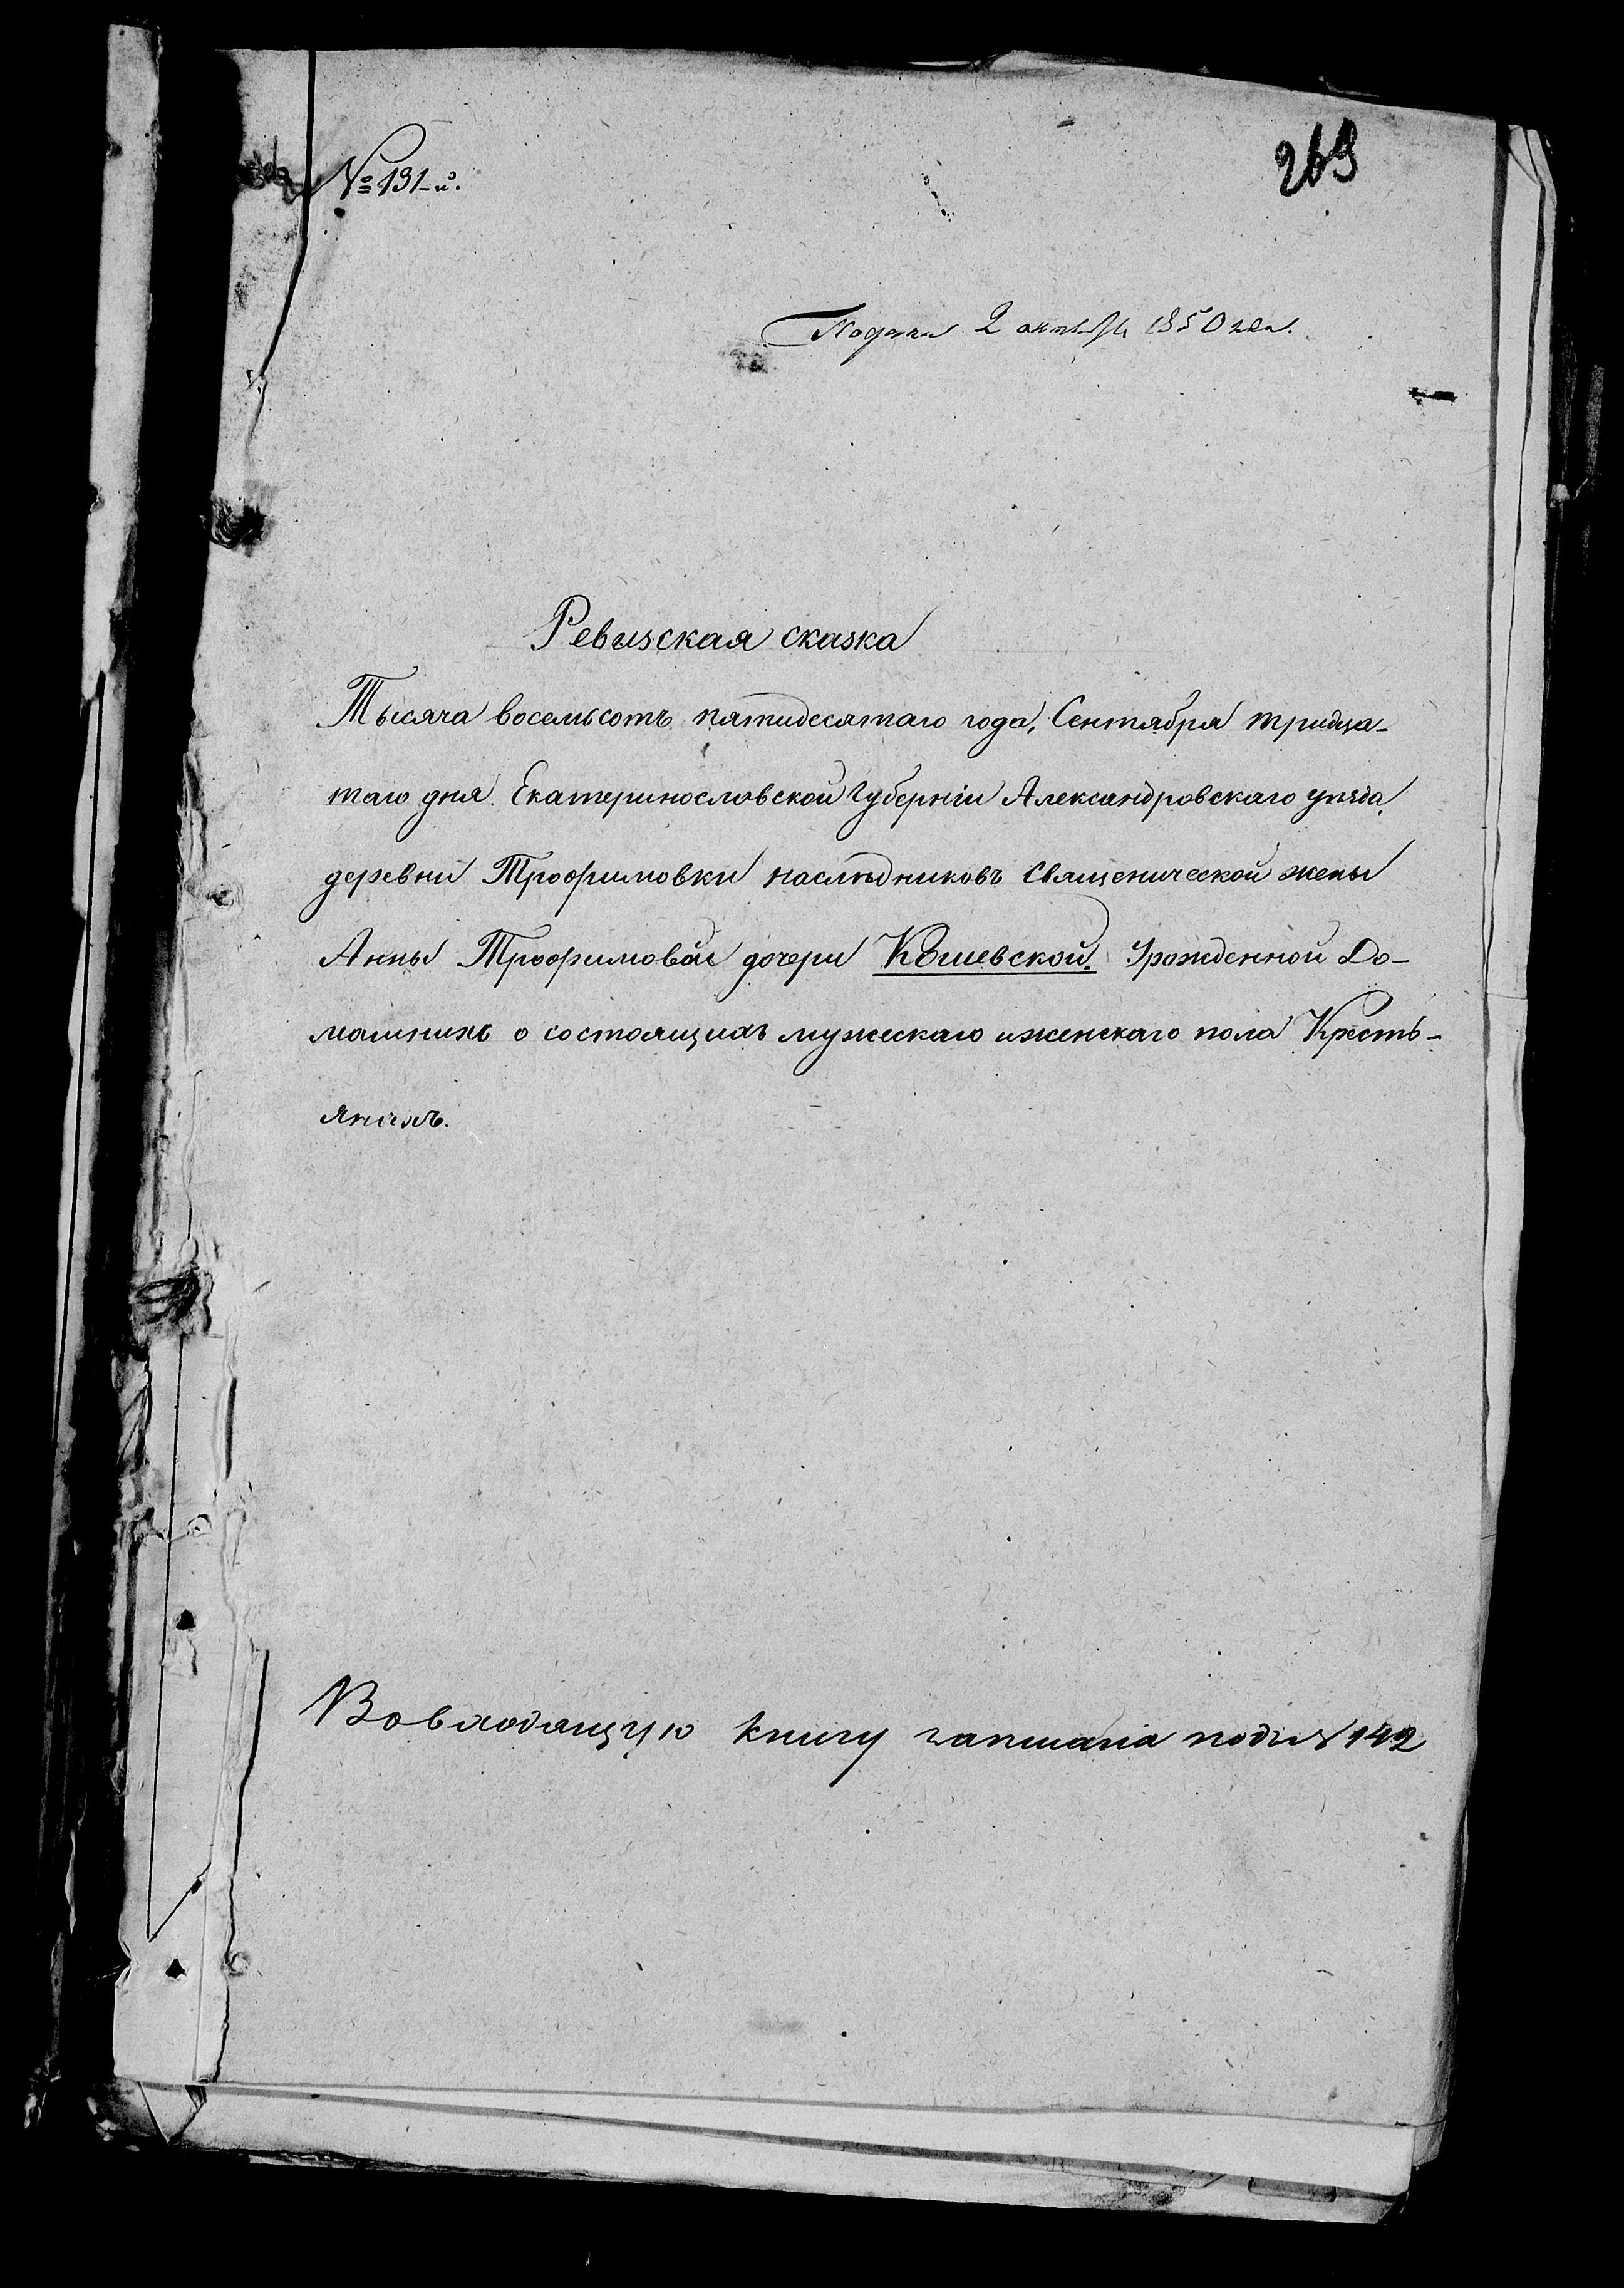 № 191-й.
269
Подана 2 октября 1850 года.
Ревизская сказка
Тысяча восемьсотъ пятидесятаго года, Сентября тридца-
таго дня. Екатеринословской Губерніи Александровскаго уѣзда,
деревни Трофимовки наслѣдниковъ Священической жены
Анны Трофимовой дочери Кошевской. Урожденной До-
машнихъ о состоящихъ мужескаго и женскаго пола Кресть-
янахъ.
Во входящую книгу записана подъ № 142